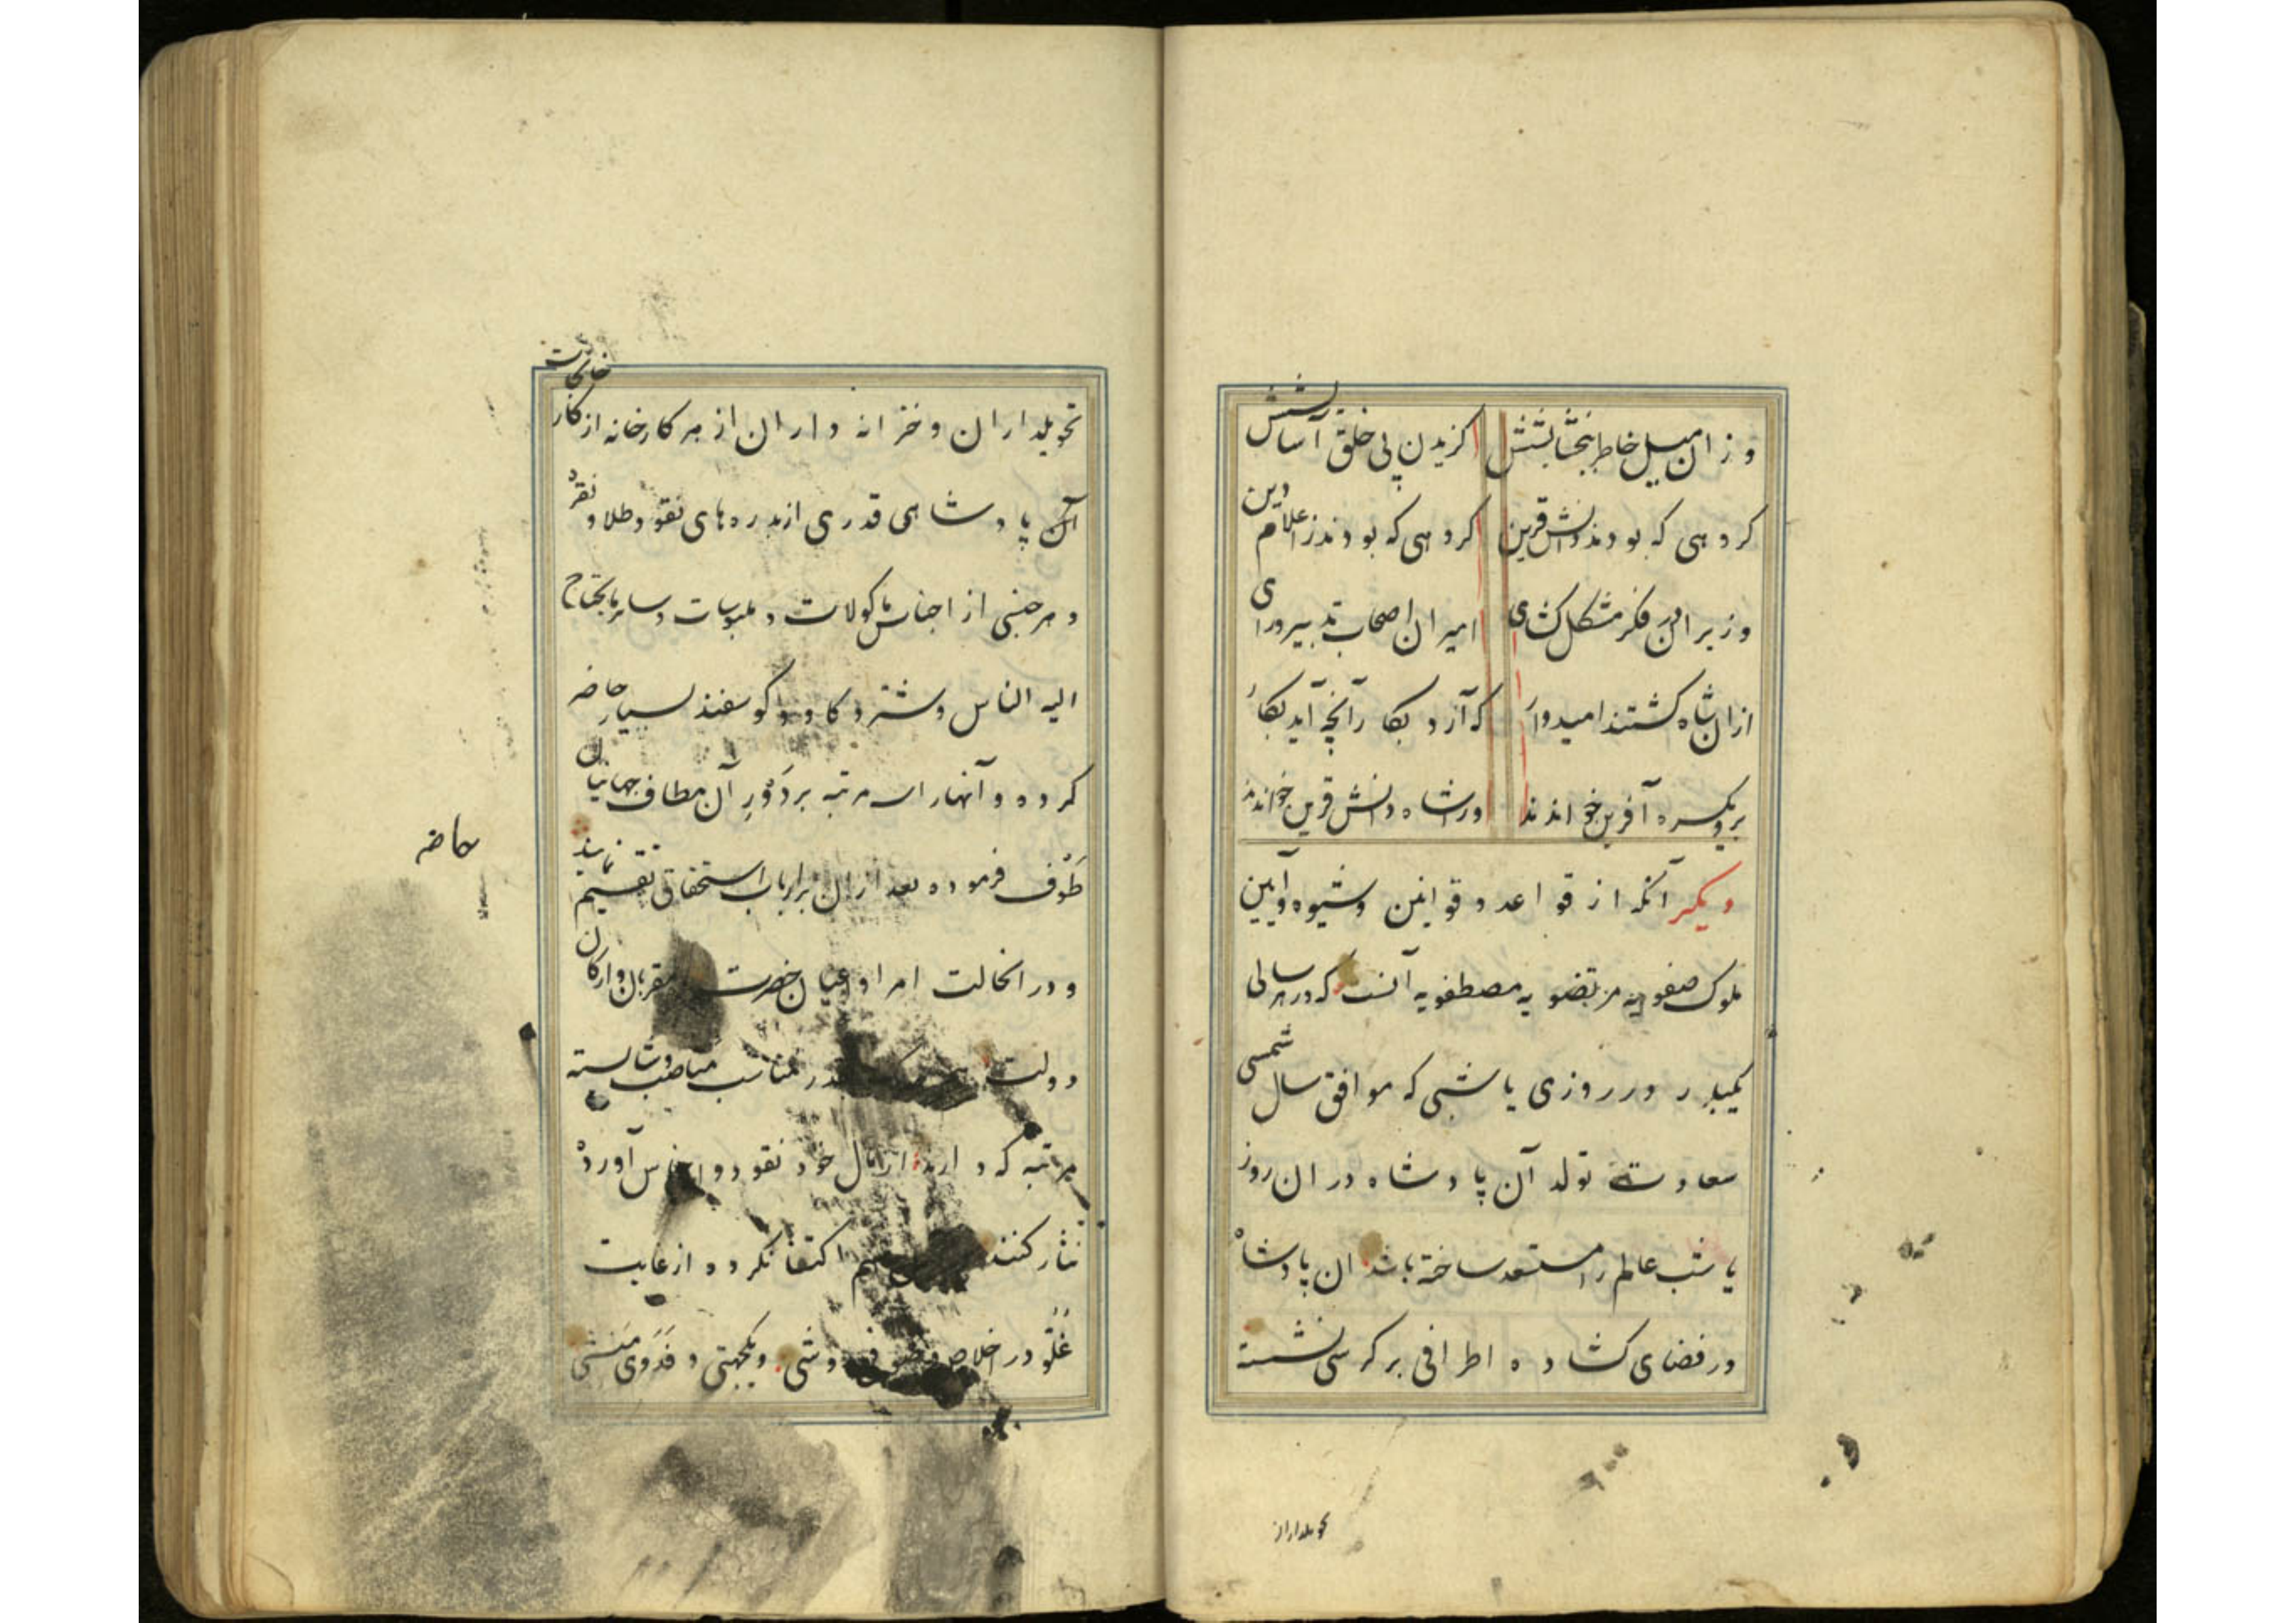 وزان میل خاطر ببخشایشش گزیدن پی خلق آسایشش
کروهی که بودند دانش قرین کروهی که بودند ز اعلام دین
وزیران فکر مشکل کشای امیران اصحاب تدبیر و رای
ازان شاه کشتند امیدوار که آرد بکار آنچه آید بکار
برو یکسره آفرین خواندند ورا شاه دانش قرین خواندند
دیکر آنکه از قواعد و قوانین و شیوه و آیین
ملوک صفویه مرتضویه مصطفویه آنست که در هر سالی
یکبار در روزی یا شبی که موافق سال شمسی
سعادت تولد آن پادشاه در ان روز
یا شب عالم را مستسعد ساخته باشد ان پادشاه
در فضای کشاده اطرافی بر کرسی نشسته
تحویلداران
تحویلداران و خزانه داران از هر کارخانه از کارخانجات
آن پادشاهی قدری از بدره های نقود طلا و نقره
و هر جنسی از اجناس ماکولات و ملبوسات و سایر مایحتاج
الیه الناس و شتر و کاو و کوسفند بسیار حاضر
کرده و آنها را سه مرتبه بر دَورِ آن مطاف جهانیان
طَوف فرموده بعد ازان برارباب استحقاق تقسیم نمایند
و درانحالت امرا و اعیان حضرت مقربان و ارکان
دولت در مناسب مناصب و شایسته
مرتبه که دارند از مال خود نقود و اجناس آورده
نثار کنند اکتفا نکرده از غایت
غُلُو در اخلاص و یکجهتی و فَدَوی مَنشی
حاضر